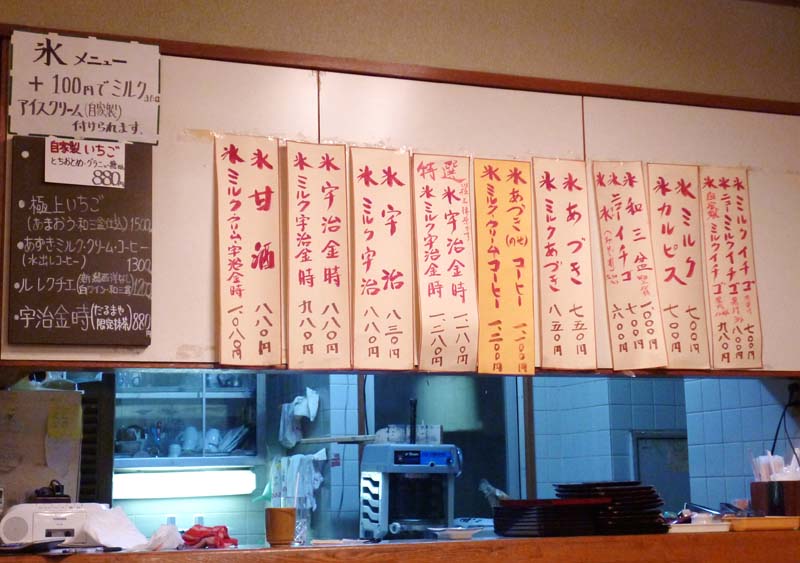 氷 メニュー
+100円でミルク
アイスクリーム(自家製)
付けられます。
自家製 いちご
880円
・極上いちご
(あまおう・和三盆仕込) 1500
・あずきミルク・クリーム・コーヒー
(水出しコーヒー) 1300
・ルレクチエ
1200
・宇治金時(たるまや限定抹茶)880円
氷甘酒 八八〇円
氷ミルク・クリーム・宇治金時 一、〇八〇円
氷宇治金時 八八〇円
氷ミルク宇治金時 九八〇円
氷宇治 八三〇円
氷ミルク宇治 八八〇円
特選
氷宇治金時 一、一八〇円
氷ミルク宇治金時 一、二八〇円
氷あづき(のせ)コーヒー 一、一〇〇円
氷ミルク・クリームコーヒー 一、二〇〇円
氷あづき 七五〇円
氷ミルクあづき 八五〇円
氷和三盆 一〇〇〇円
氷ニューイチゴ 七〇〇円
氷 六〇〇円
氷ミルク 七〇〇円
氷カルピス 七〇〇円
氷ミルクイチゴ 七〇〇円
氷ニューミルクイチゴ 八〇〇円
自家製 ミルクイチゴ 九八〇円